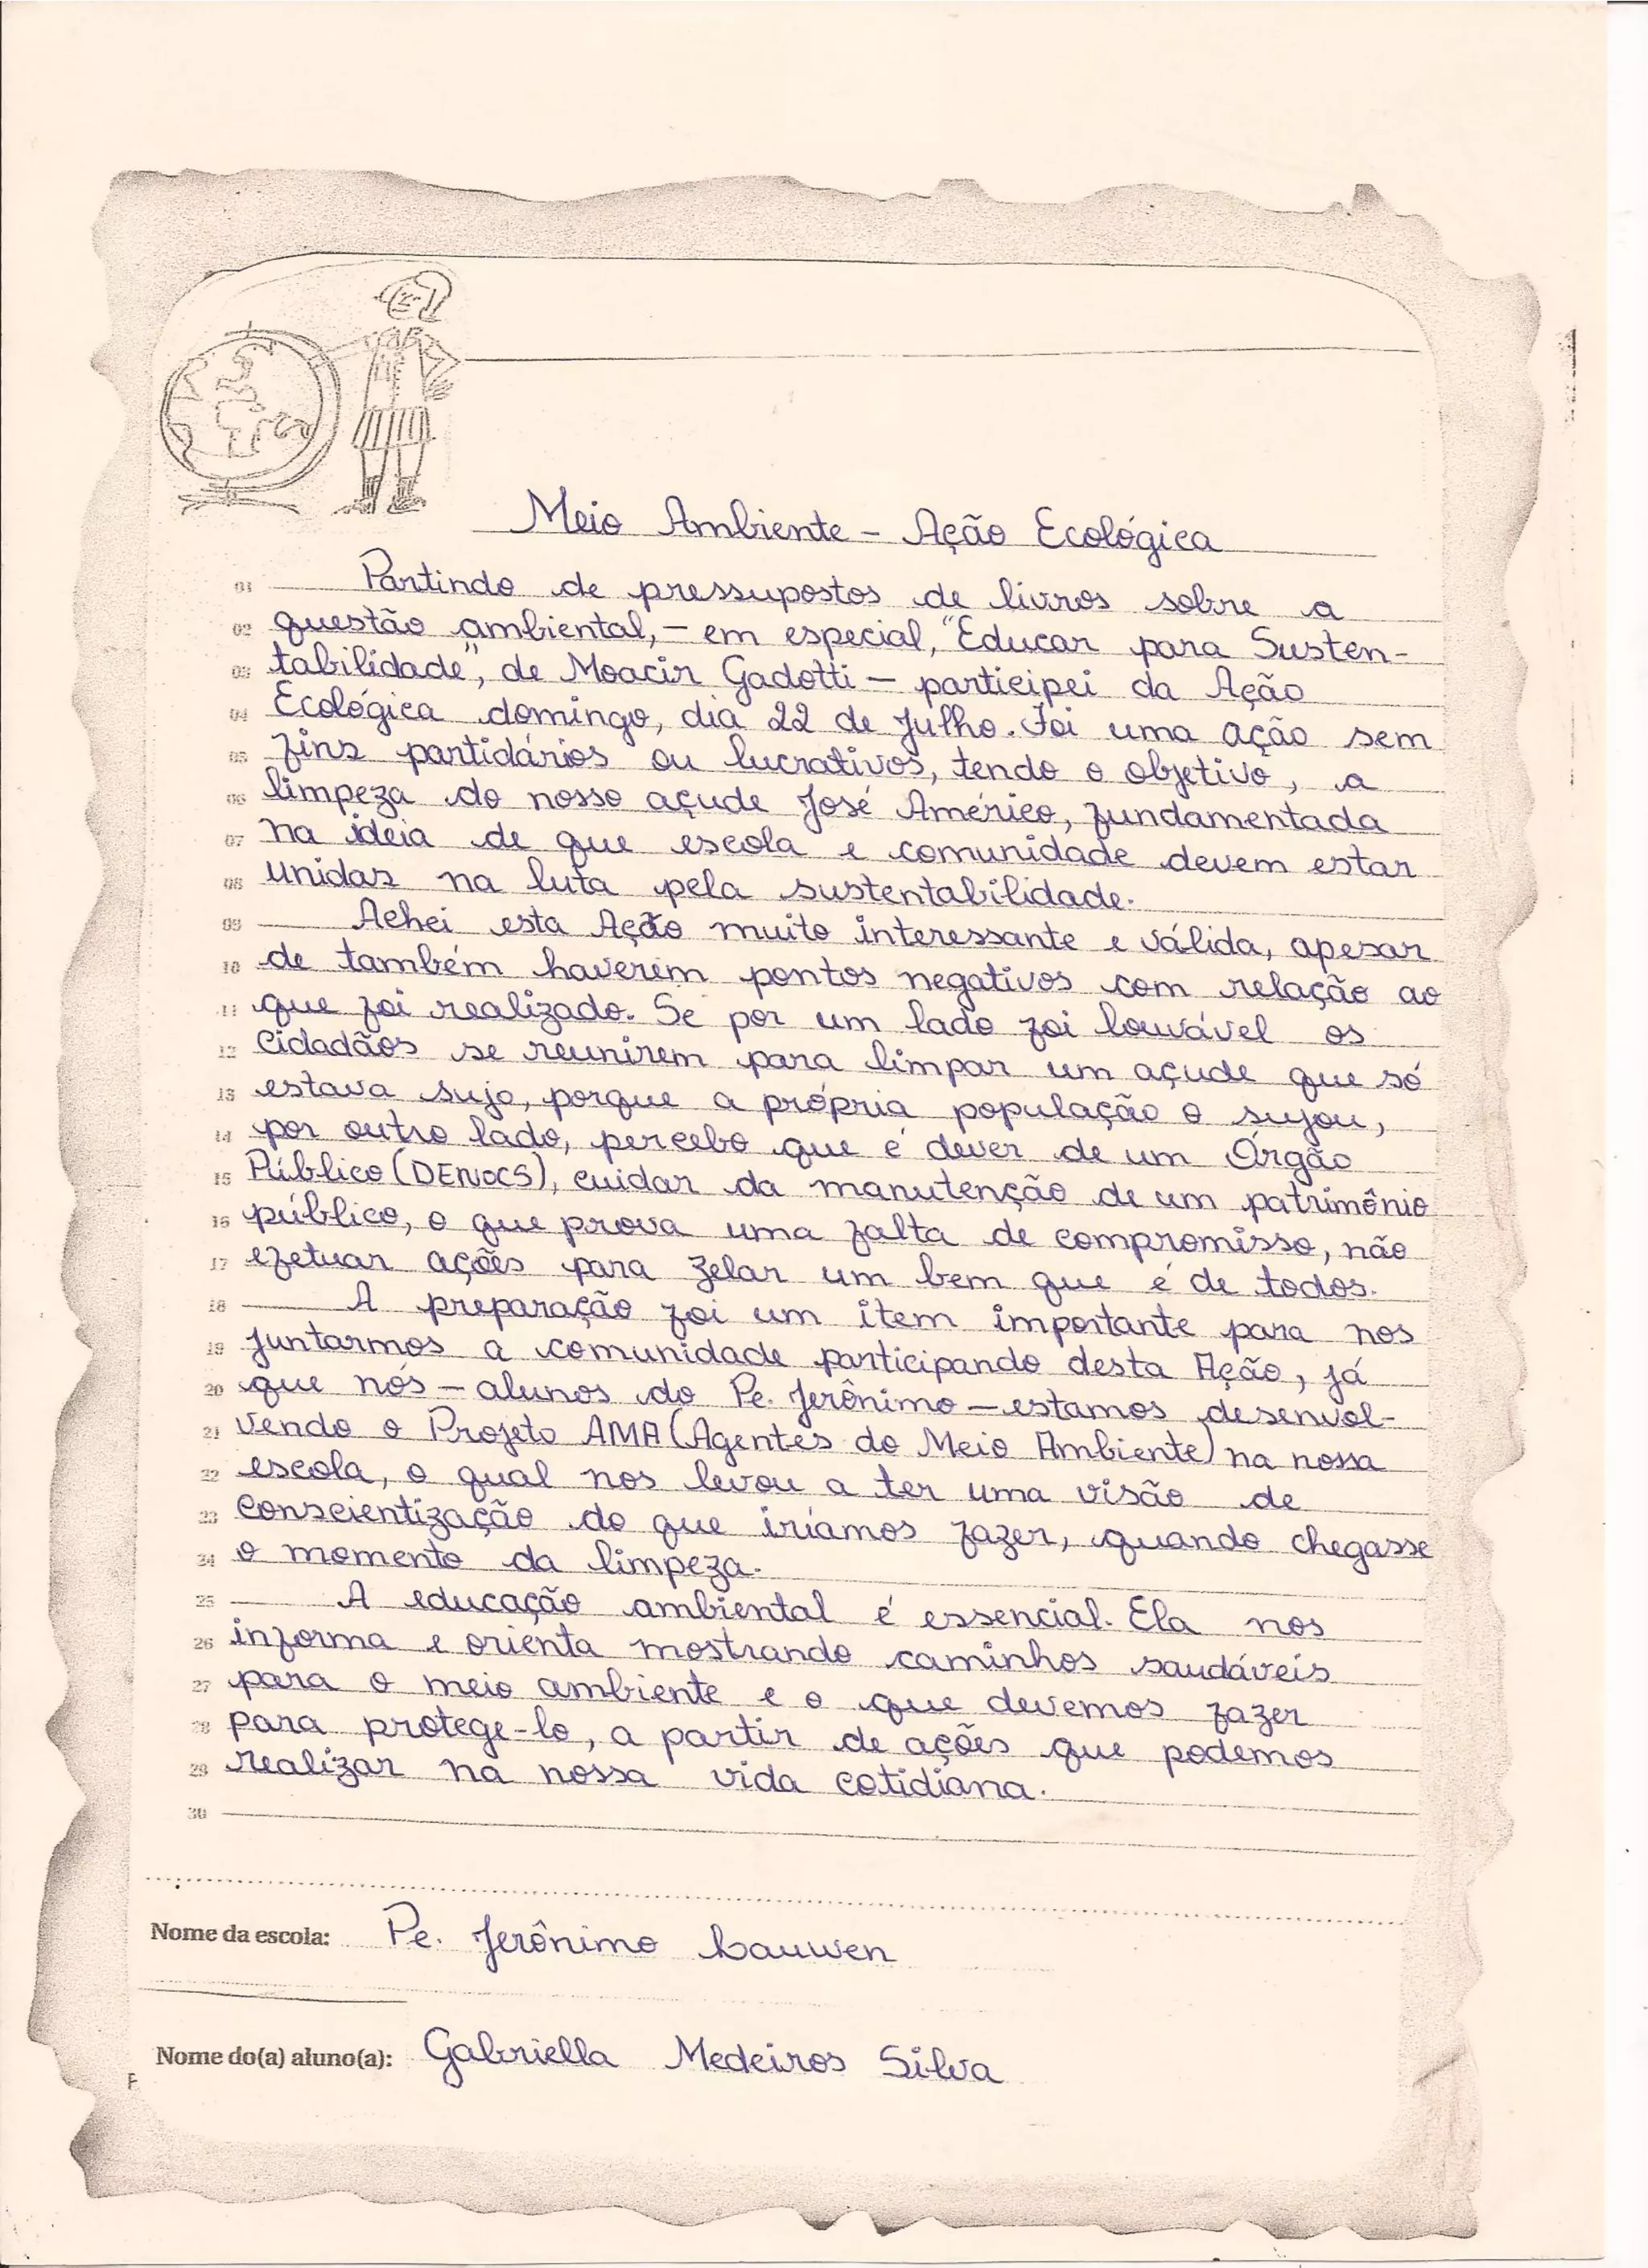 Meio Ambiente - Ação Ecológica
01 Partindo de pressupostos de livros sobre a
02 questão ambiental, - em especial, "Educar para Susten-
03 tabilidade", de Moacir Gadotti - participei da Ação
04 Ecológica domingo, dia 22 de Julho. Foi uma ação sem
05 fins partidários ou lucrativos, tendo o objetivo, a
06 limpeza do nosso açude José Américo, fundamentada
07 na ideia de que escola e comunidade devem estar
08 unidas na luta pela sustentabilidade.
09 Achei esta Ação muito interessante e válida, apesar
10 de também haverem pontos negativos com relação ao
11 que foi realizado. Se por um lado foi louvável os
12 cidadãos se reunirem para limpar um açude que só
13 estava sujo, porque a própria população o sujou,
14 por outro lado, percebo que é dever de um Órgão
15 Público (DENOCS), cuidar da manutenção de um patrimônio
16 público, o que prova uma falta de compromisso, não
17 efetuar ações para zelar um bem que é de todos.
18 A preparação foi um item importante para nos
19 juntarmos a comunidade participando desta Ação, já
20 que nós - alunos do Pe. Jerônimo - estamos desenvol-
21 vendo o Projeto AMA (Agentes do Meio Ambiente) na nossa
22 escola, o qual nos levou a ter uma visão de
23 conscientização do que iríamos fazer, quando chegasse
24 o momento da limpeza.
25 A educação ambiental é essencial. Ela nos
26 informa e orienta mostrando caminhos saudáveis
27 para o meio ambiente e o que devemos fazer
28 para protege-lo, a partir de ações que podemos
29 realizar na nossa vida cotidiana.
30
Nome da escola: Pe. Jerônimo Lauwen
Nome do(a) aluno(a): Gabriella Medeiros Silva
F